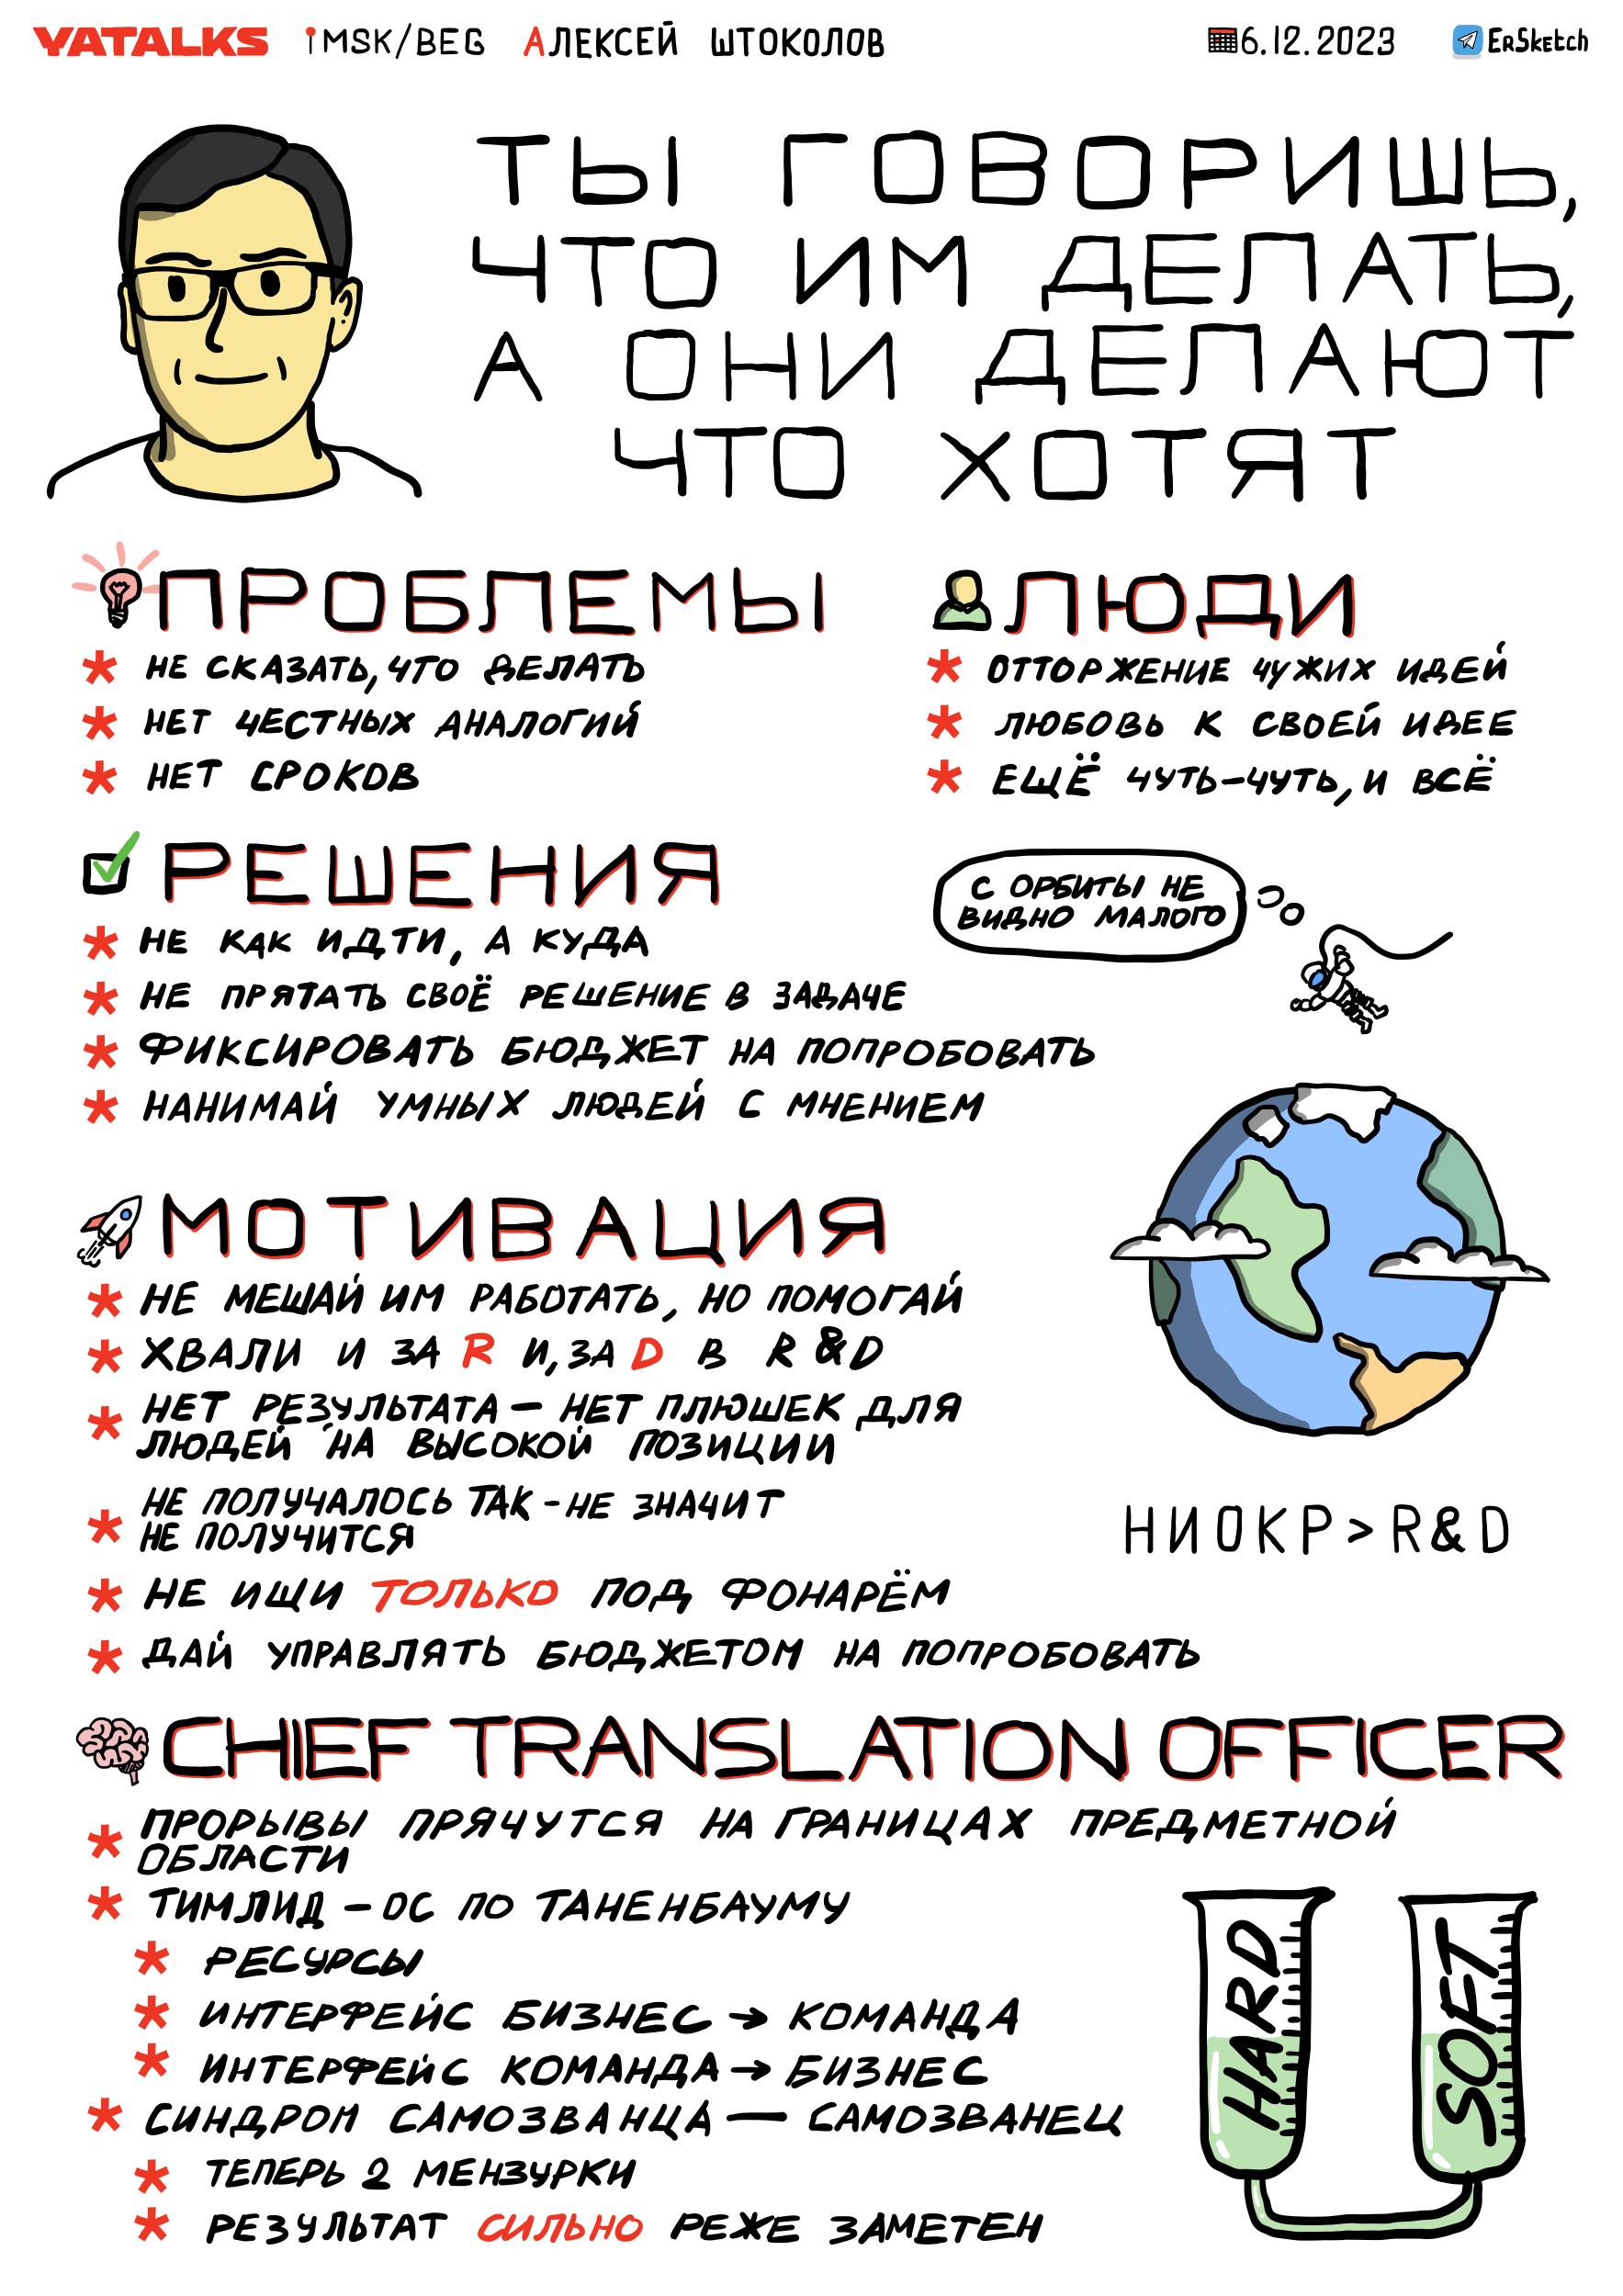 YATALKS MSK/BEG АЛЕКСЕЙ ШТОКОЛОВ 6.12.2023 ErSketch
ТЫ ГОВОРИШЬ,
ЧТО ИМ ДЕЛАТЬ,
А ОНИ ДЕЛАЮТ
ЧТО ХОТЯТ
ПРОБЛЕМЫ
* НЕ СКАЗАТЬ, ЧТО ДЕЛАТЬ
* НЕТ ЧЕСТНЫХ АНАЛОГИЙ
* НЕТ СРОКОВ
ЛЮДИ
* ОТТОРЖЕНИЕ ЧУЖИХ ИДЕЙ
* ЛЮБОВЬ К СВОЕЙ ИДЕЕ
* ЕЩЁ ЧУТЬ-ЧУТЬ, И ВСЁ
РЕШЕНИЯ
* НЕ КАК ИДТИ, А КУДА
* НЕ ПРЯТАТЬ СВОЁ РЕШЕНИЕ В ЗАДАЧЕ
* ФИКСИРОВАТЬ БЮДЖЕТ НА ПОПРОБОВАТЬ
* НАНИМАЙ УМНЫХ ЛЮДЕЙ С МНЕНИЕМ
С ОРБИТЫ НЕ
ВИДНО МАЛОГО
МОТИВАЦИЯ
* НЕ МЕШАЙ ИМ РАБОТАТЬ, НО ПОМОГАЙ
* ХВАЛИ И ЗА R И, ЗА D В R &D
* НЕТ РЕЗУЛЬТАТА - НЕТ ПЛЮШЕК ДЛЯ
ЛЮДЕЙ НА ВЫСОКОЙ ПОЗИЦИИ
* НЕ ПОЛУЧАЛОСЬ ТАК - НЕ ЗНАЧИТ
НЕ ПОЛУЧИТСЯ
* НЕ ИЩИ ТОЛЬКО ПОД ФОНАРЁМ
* ДАЙ УПРАВЛЯТЬ БЮДЖЕТОМ НА ПОПРОБОВАТЬ
НИОКР > R&D
CHIEF TRANSLATION OFFICER
* ПРОРЫВЫ ПРЯЧУТСЯ НА ГРАНИЦАХ ПРЕДМЕТНОЙ
ОБЛАСТИ
* ТИМЛИД - ОС ПО ТАНЕНБАУМУ
* РЕСУРСЫ
* ИНТЕРФЕЙС БИЗНЕС → КОМАНДА
* ИНТЕРФЕЙС КОМАНДА → БИЗНЕС
* СИНДРОМ САМОЗВАНЦА — САМОЗВАНЕЦ
* ТЕПЕРЬ 2 МЕНЗУРКИ
* РЕЗУЛЬТАТ СИЛЬНО РЕЖЕ ЗАМЕТЕН
HARD
SOFT